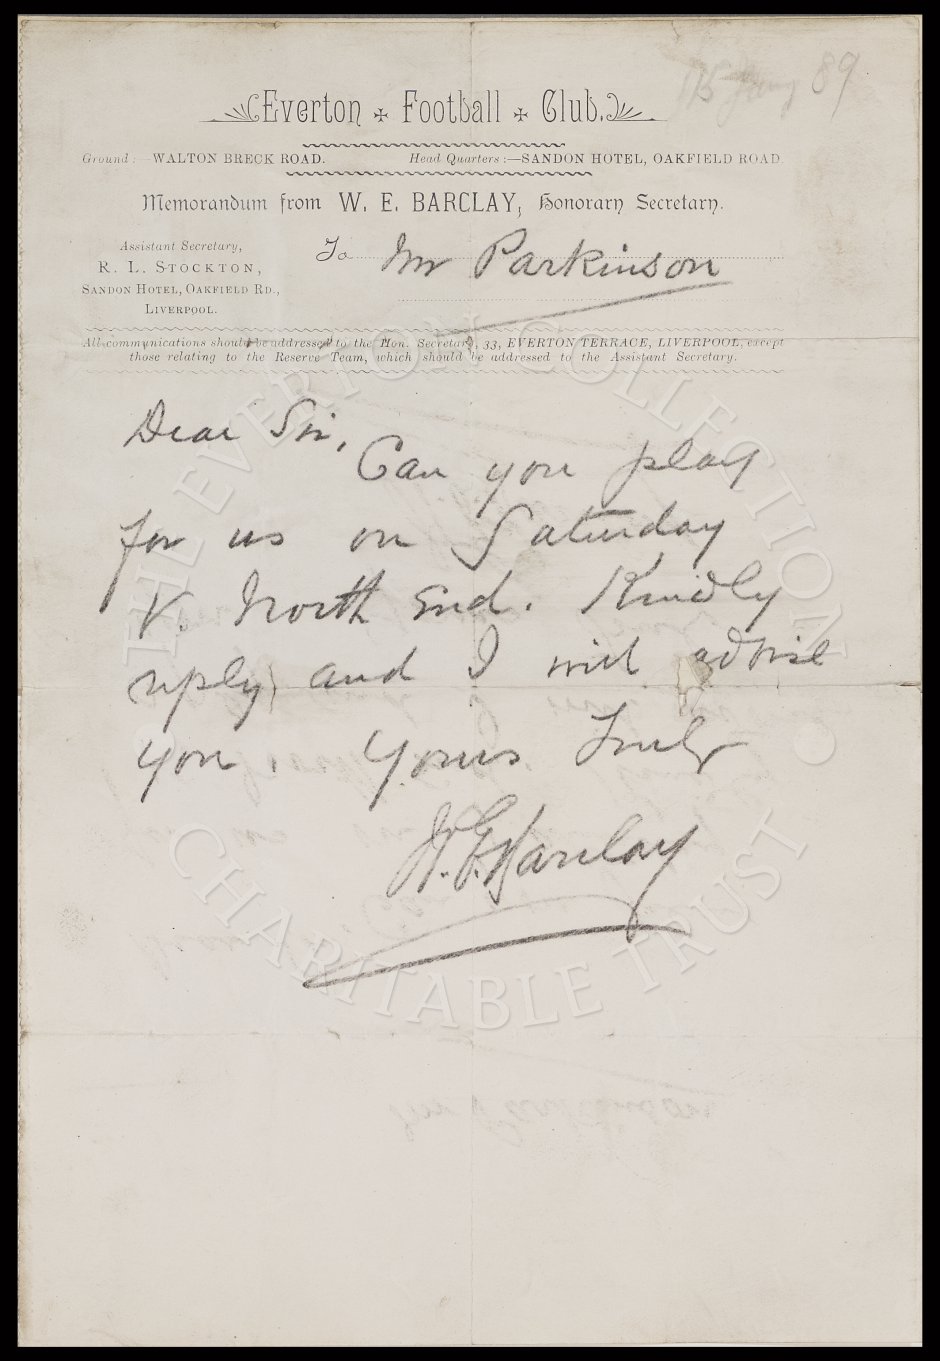 15 Jany 89
Everton Football Club.
Ground:—WALTON BRECK ROAD. Head Quarters:—SANDON HOTEL, OAKFIELD ROAD
Memorandum from W. E. BARCLAY, Honorary Secretary.
Assistant Secretary,
R. L. STOCKTON,
SANDON HOTEL, OAKFIELD RD.,
LIVERPOOL.
To Mr Parkinson
All communications should be addressed to the Hon. Secretary, 33, EVERTON TERRACE, LIVERPOOL, except
those relating to the Reserve Team, which should be addressed to the Assistant Secretary.
Dear Sir,
Can you play
for us on Saturday
V. North End. Kindly
reply and I will advise
you. Yours Truly
W. E. Barclay
THE EVERTON COLLECTION
CHARITABLE TRUST